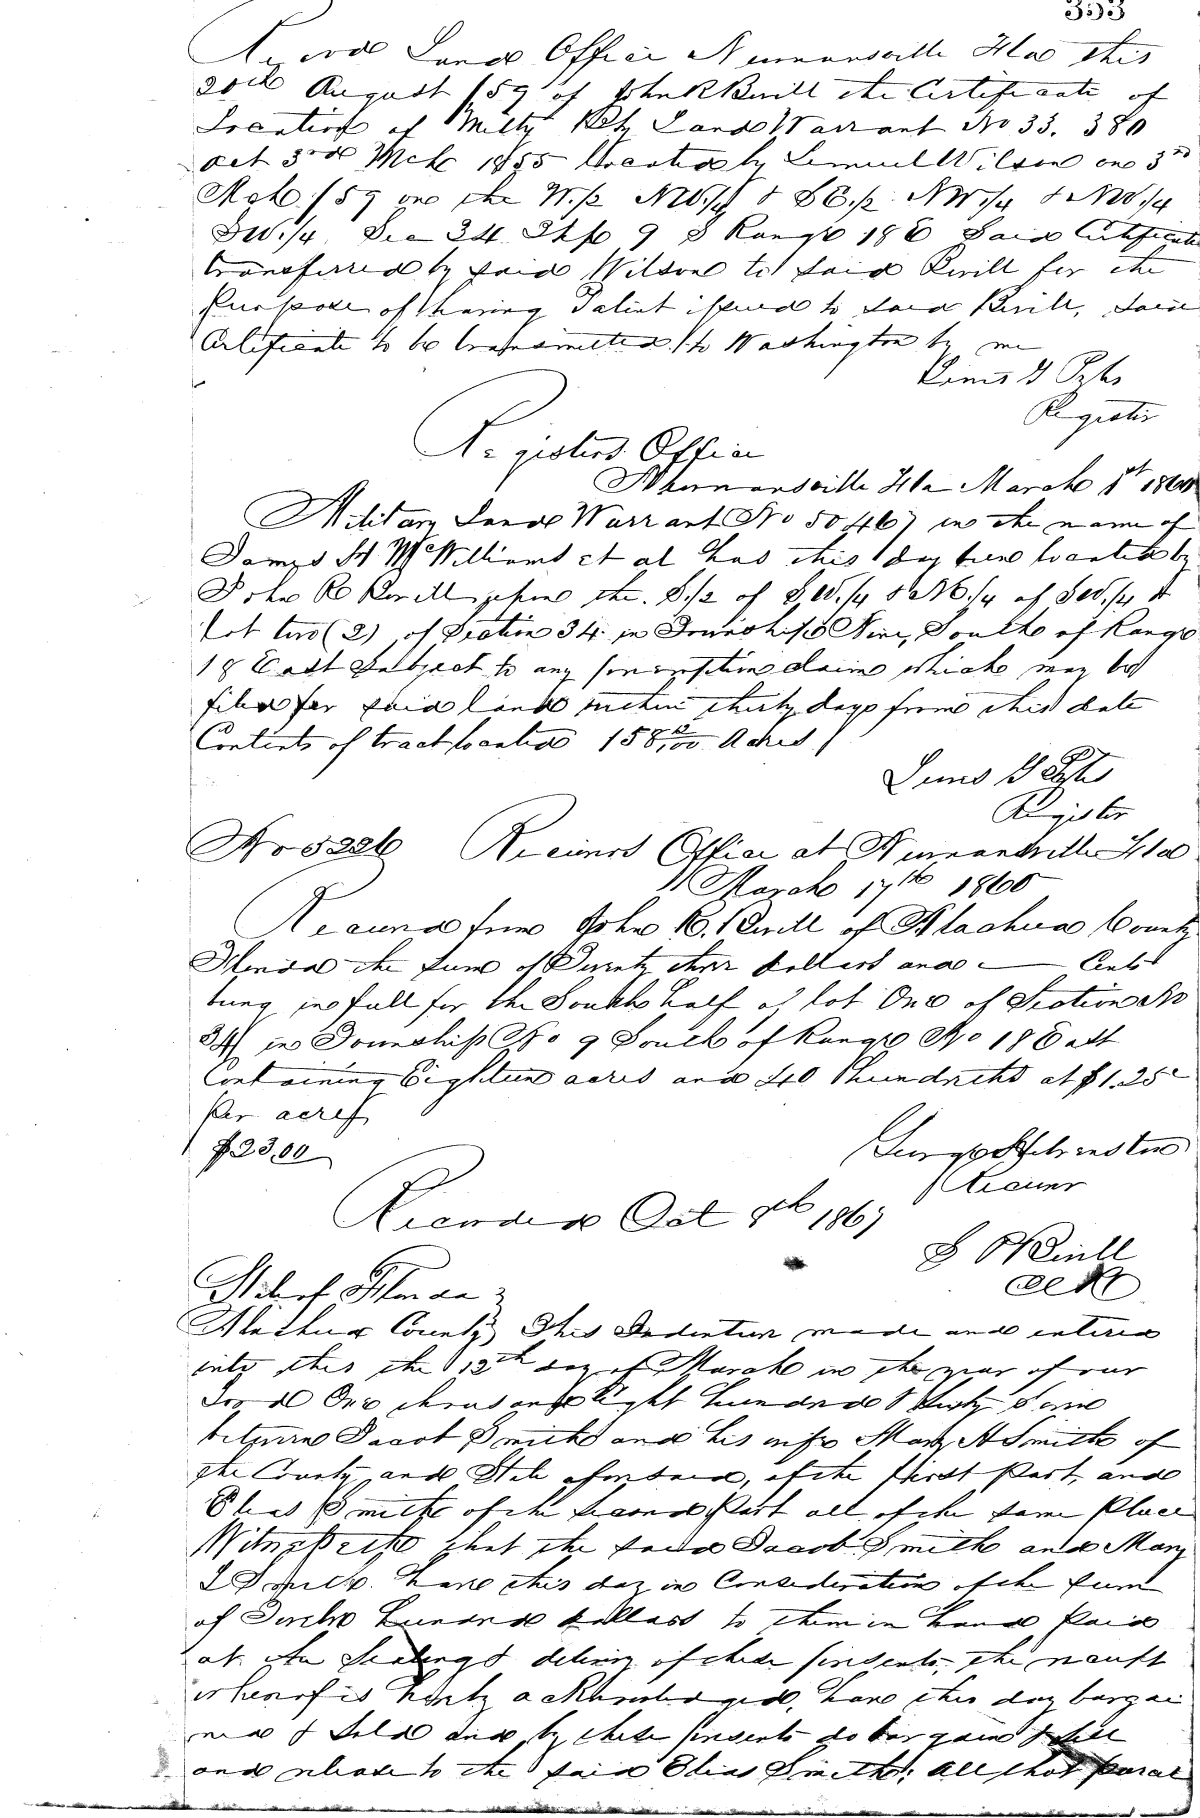 353
Record Land Office Newnansville Fla this
20th August 1859 of John R Bevill the Certificate of
Location of Milty Bty Land Warrant No 33. 380
act 3rd Mch 1855 located by Lemuel Wilson on 3rd
Mch /59 on the W.1/2 NW.1/4 & SE.1/2 NW.1/4 & NW.1/4
SW.1/4 Sec 34 Tshp 9 S Range 18 E Said Certificate
transferred by said Wilson to said Bevill for the
purpose of having Patent issued to said Bevill, said
Certificate to be transmitted to Washington by me
Register
Registers Office
Newnansville Fla March 1st 1860
Military Land Warrant No 50467 in the name of
James H McWilliams et al has this day been located by
John R Bevill upon the S.1/2 of SW.1/4 & NE.1/4 of SW.1/4 &
Lot two (2) of Section 34 in Township Nine, South of Range
18 East Subject to any preemption claim which may be
filed for said land within thirty days from this date
Contents of tract located 158 Acres
Register
No 5226 Receivers Office at Newnansville Fla
March 17th 1860
Received from John R. Bevill of Alachua County
Florida the sum of Twenty three dollars and — Cents
being in full for the South half of lot One of Section No
34 in Township No 9 South of Range No 18 East
Containing Eighteen acres and 40 hundreths at $1.25c
per acre
$23,00
Receiver
Recorded Oct 8th 1867
S Bevill
Clk
State of Florida }
Alachua County } This Indenture made and entered
into this the 12th day of March in the year of our
Lord One thousand Eight hundred & Sixty Seven
between Jacob Smith and his wife Mary A Smith of
the County and State aforesaid, of the first part, and
Elias Smith of the second part all of the same place
Witnesseth that the said Jacob Smith and Mary
Smith have this day in Consideration of the sum
of Twelve hundred dollars to them in hand paid
at the Sealing & delivery of these presents, the receipt
whereof is hereby acknowledged, have this day bargai
ned & sold and by these presents do bargain & sell
and release to the said Elias Smith; all that parcel